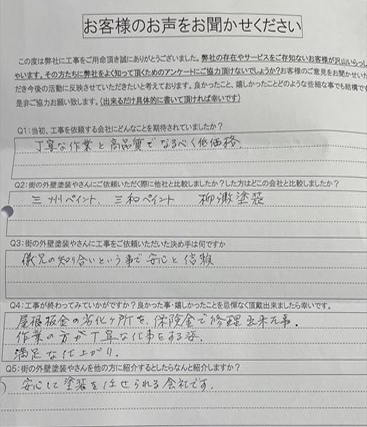 お客様のお声をお聞かせください
この度は弊社に工事をご用命頂き誠にありがとうございました。弊社の存在やサービスをご存知ないお客様が沢山いらっし
ゃいます。その方たちに弊社をよく知って頂くためのアンケートにご協力頂けないでしょうか?お客様のご意見をお聞かせいた
だき今後の活動に反映させていただきたいと考えております。良かったこと、嬉しかったことどのような些細な事でも結構です
是非ご協力お願い致します。(出来るだけ具体的に書いて頂ければ幸いです)
Q1:当初、工事を依頼する会社にどんなことを期待されていましたか?
丁寧な作業と高品質でなるべく低価格
Q2:街の外壁塗装やさんにご依頼いただく際に他社と比較しましたか?した方はどこの会社と比較しましたか?
三州ペイント、三和ペイント 柳瀬塗装
Q3:街の外壁塗装やさんに工事をご依頼いただいた決め手は何ですか
義兄の知合いという事で安心と信頼
Q4:工事が終わってみていかがですか?良かった事・嬉しかったことを忌憚なく頂戴出来ましたら幸いです。
屋根板金の劣化ヶ所を、保険金で修理出来た事。
作業の方が丁寧な仕事をする姿。
満足な仕上がり。
Q5:街の外壁塗装やさんを他の方に紹介するとしたらなんと紹介しますか?
安心して塗装を任せられる会社です。